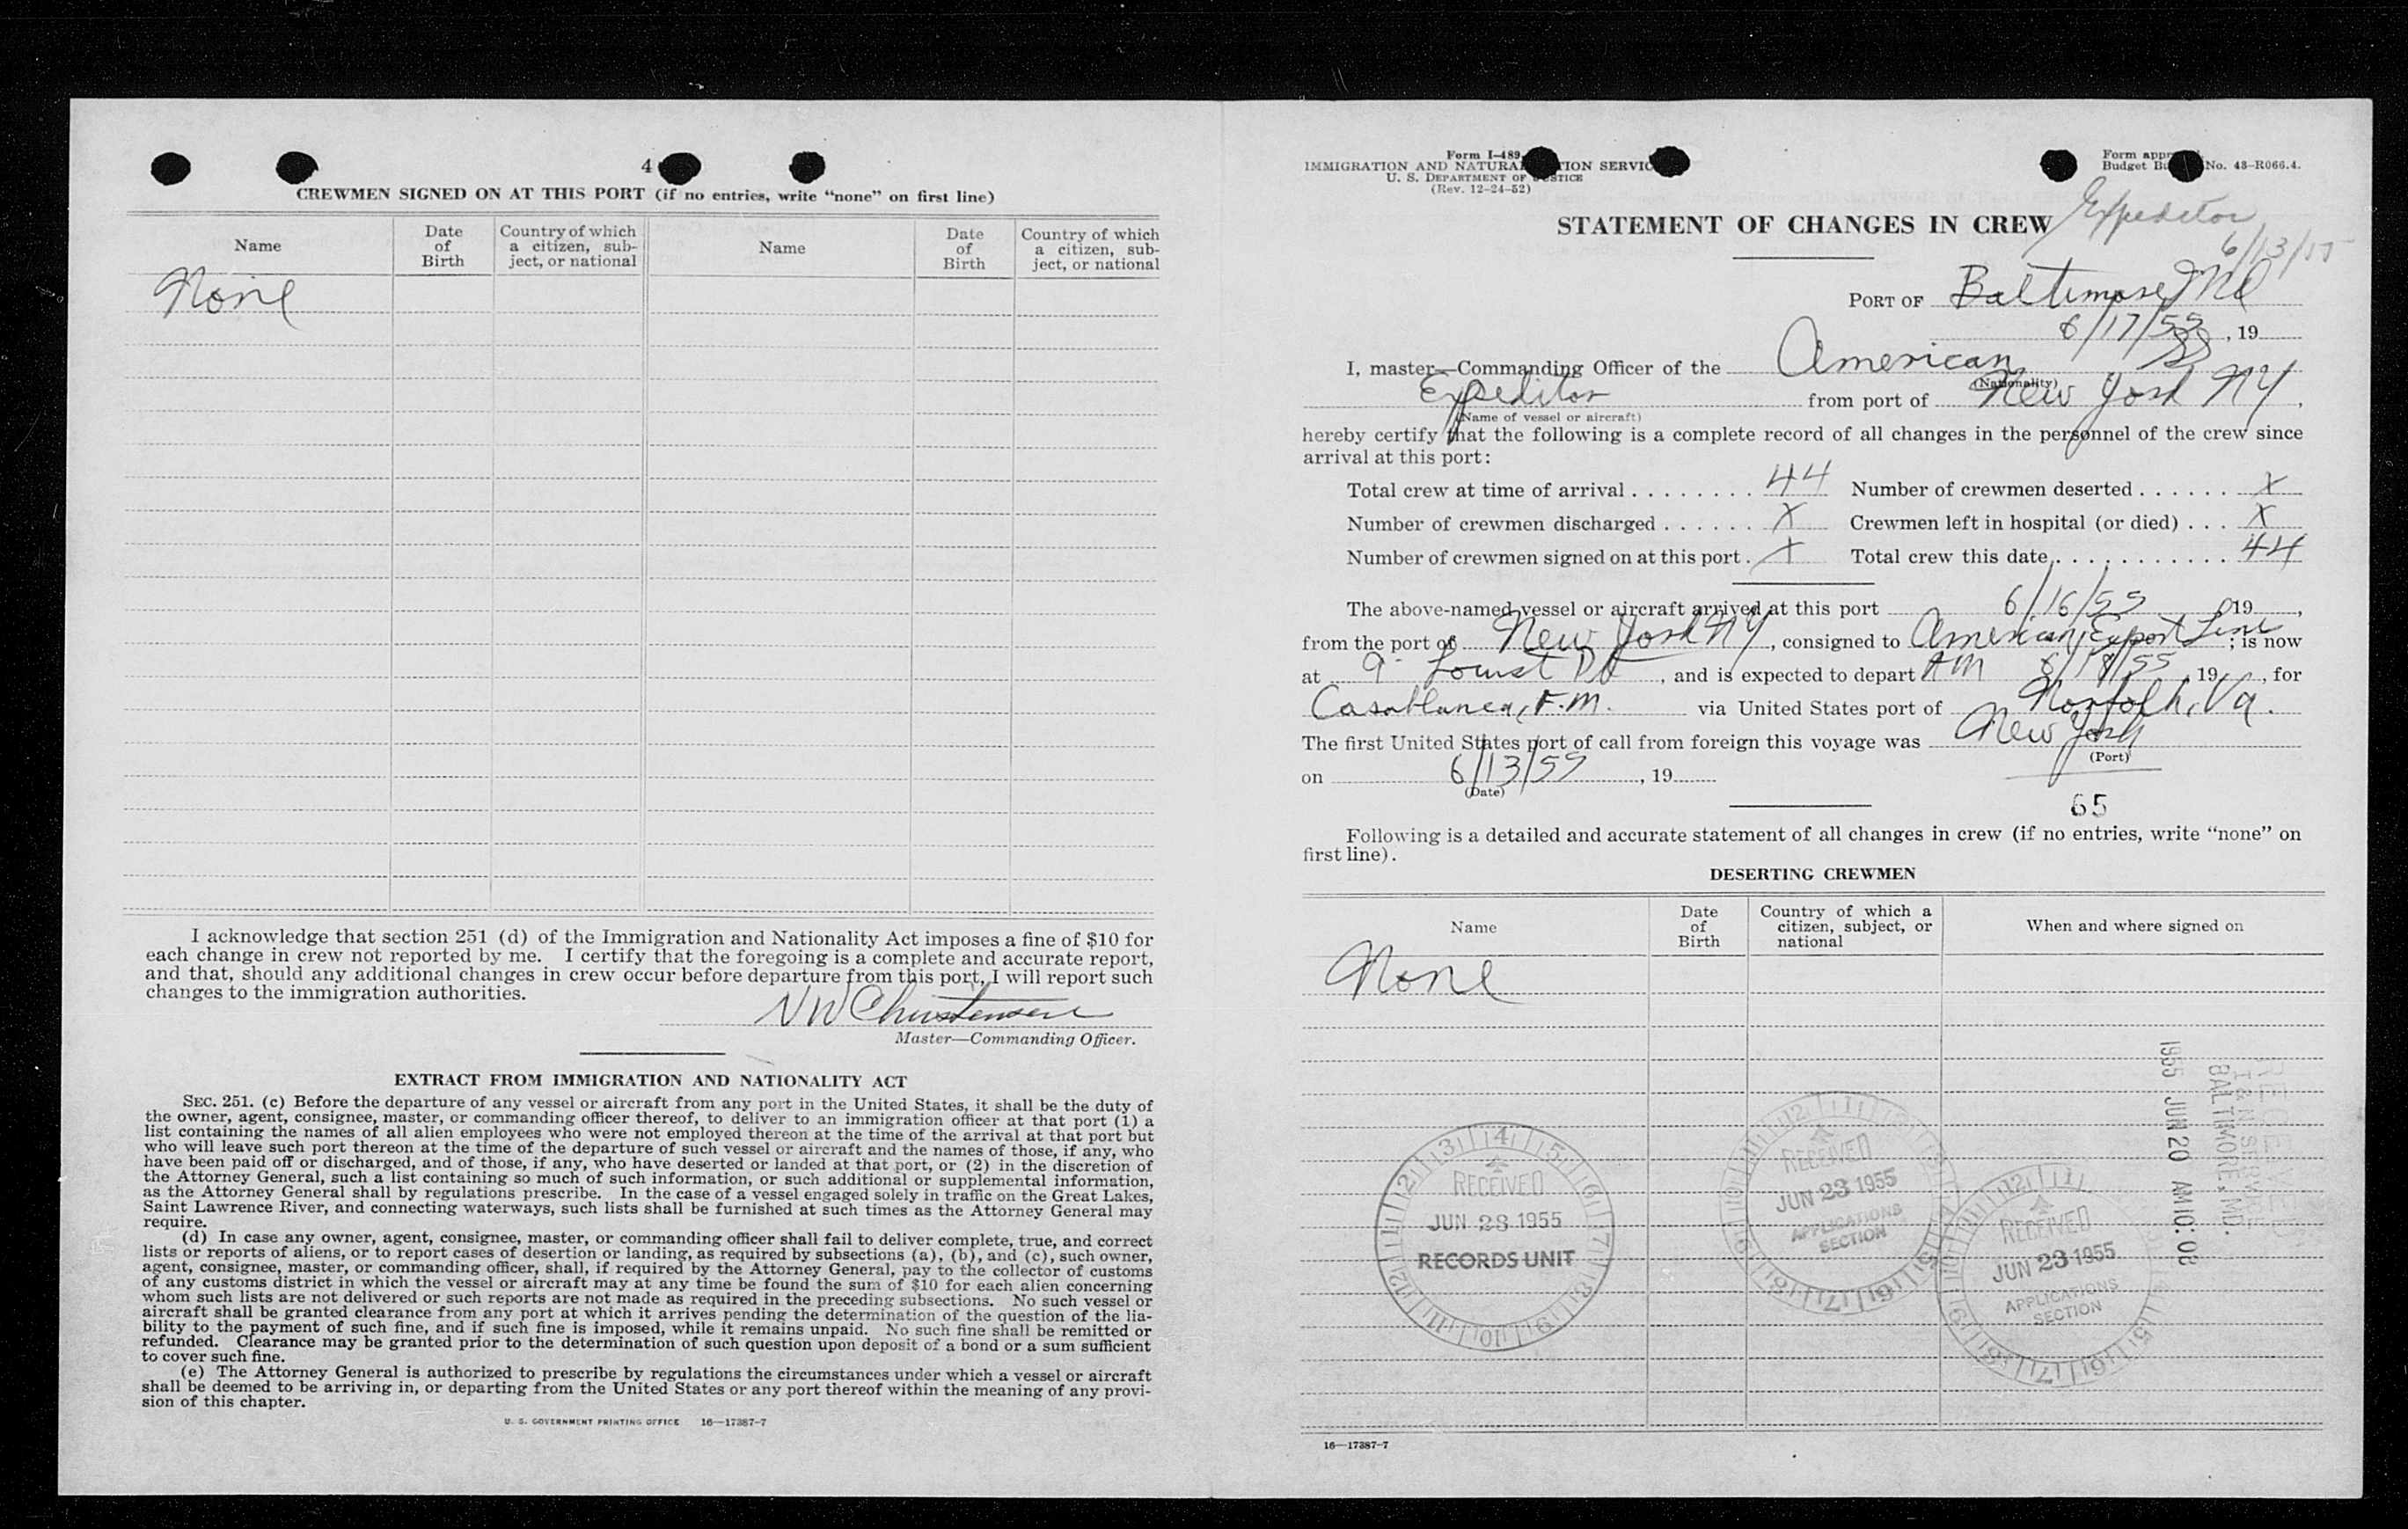 4
CREWMEN SIGNED ON AT THIS PORT (if no entries, write "none" on first line)
Name
Date of Birth
Country of which a citizen, subject, or national
Name
Date of Birth
Country of which a citizen, subject, or national
None
I acknowledge that section 251 (d) of the Immigration and Nationality Act imposes a fine of $10 for
each change in crew not reported by me. I certify that the foregoing is a complete and accurate report,
and that, should any additional changes in crew occur before departure from this port, I will report such
changes to the immigration authorities.
N W Christensen
Master—Commanding Officer.
EXTRACT FROM IMMIGRATION AND NATIONALITY ACT
SEC. 251. (c) Before the departure of any vessel or aircraft from any port in the United States, it shall be the duty of
the owner, agent, consignee, master, or commanding officer thereof, to deliver to an immigration officer at that port (1) a
list containing the names of all alien employees who were not employed thereon at the time of the arrival at that port but
who will leave such port thereon at the time of the departure of such vessel or aircraft and the names of those, if any, who
have been paid off or discharged, and of those, if any, who have deserted or landed at that port, or (2) in the discretion of
the Attorney General, such a list containing so much of such information, or such additional or supplemental information,
as the Attorney General shall by regulations prescribe. In the case of a vessel engaged solely in traffic on the Great Lakes,
Saint Lawrence River, and connecting waterways, such lists shall be furnished at such times as the Attorney General may
require.
(d) In case any owner, agent, consignee, master, or commanding officer shall fail to deliver complete, true, and correct
lists or reports of aliens, or to report cases of desertion or landing, as required by subsections (a), (b), and (c), such owner,
agent, consignee, master, or commanding officer, shall, if required by the Attorney General, pay to the collector of customs
of any customs district in which the vessel or aircraft may at any time be found the sum of $10 for each alien concerning
whom such lists are not delivered or such reports are not made as required in the preceding subsections. No such vessel or
aircraft shall be granted clearance from any port at which it arrives pending the determination of the question of the lia-
bility to the payment of such fine, and if such fine is imposed, while it remains unpaid. No such fine shall be remitted or
refunded. Clearance may be granted prior to the determination of such question upon deposit of a bond or a sum sufficient
to cover such fine.
(e) The Attorney General is authorized to prescribe by regulations the circumstances under which a vessel or aircraft
shall be deemed to be arriving in, or departing from the United States or any port thereof within the meaning of any provi-
sion of this chapter.
U. S. GOVERNMENT PRINTING OFFICE 16—17387-7
Form I-489
IMMIGRATION AND NATURA TION SERVIC
U. S. DEPARTMENT OF JUSTICE
(Rev. 12-24-52)
Form appr
Budget Bu No. 43-R066.4.
STATEMENT OF CHANGES IN CREW
Expeditor
6/13/55
PORT OF Baltimore, Md
6/17/55, 19
I, master—Commanding Officer of the American SS
(Nationality)
Expeditor from port of New York NY.
(Name of vessel or aircraft)
hereby certify that the following is a complete record of all changes in the personnel of the crew since
arrival at this port:
Total crew at time of arrival ........ 44 Number of crewmen deserted ...... X
Number of crewmen discharged ...... X Crewmen left in hospital (or died) ... X
Number of crewmen signed on at this port . X Total crew this date ........... 44
The above-named vessel or aircraft arrived at this port 6/16/55 19 ,
from the port of New York NY, consigned to American Export Line; is now
at 9 Locust Pt, and is expected to depart AM 6/18/55 19 , for
Casablanca, F.M. via United States port of Norfolk, Va.
The first United States port of call from foreign this voyage was New York
(Port)
on 6/13/55, 19
(Date)
65
Following is a detailed and accurate statement of all changes in crew (if no entries, write "none" on
first line).
DESERTING CREWMEN
Name
Date of Birth
Country of which a citizen, subject, or national
When and where signed on
None
RECEIVED
JUN 23 1955
RECORDS UNIT
RECEIVED
JUN 23 1955
APPLICATIONS
SECTION
RECEIVED
JUN 23 1955
APPLICATIONS
SECTION
RECEIVED
I & N SERVICE
BALTIMORE, MD.
1955 JUN 20 AM 10:08
16—17387-7